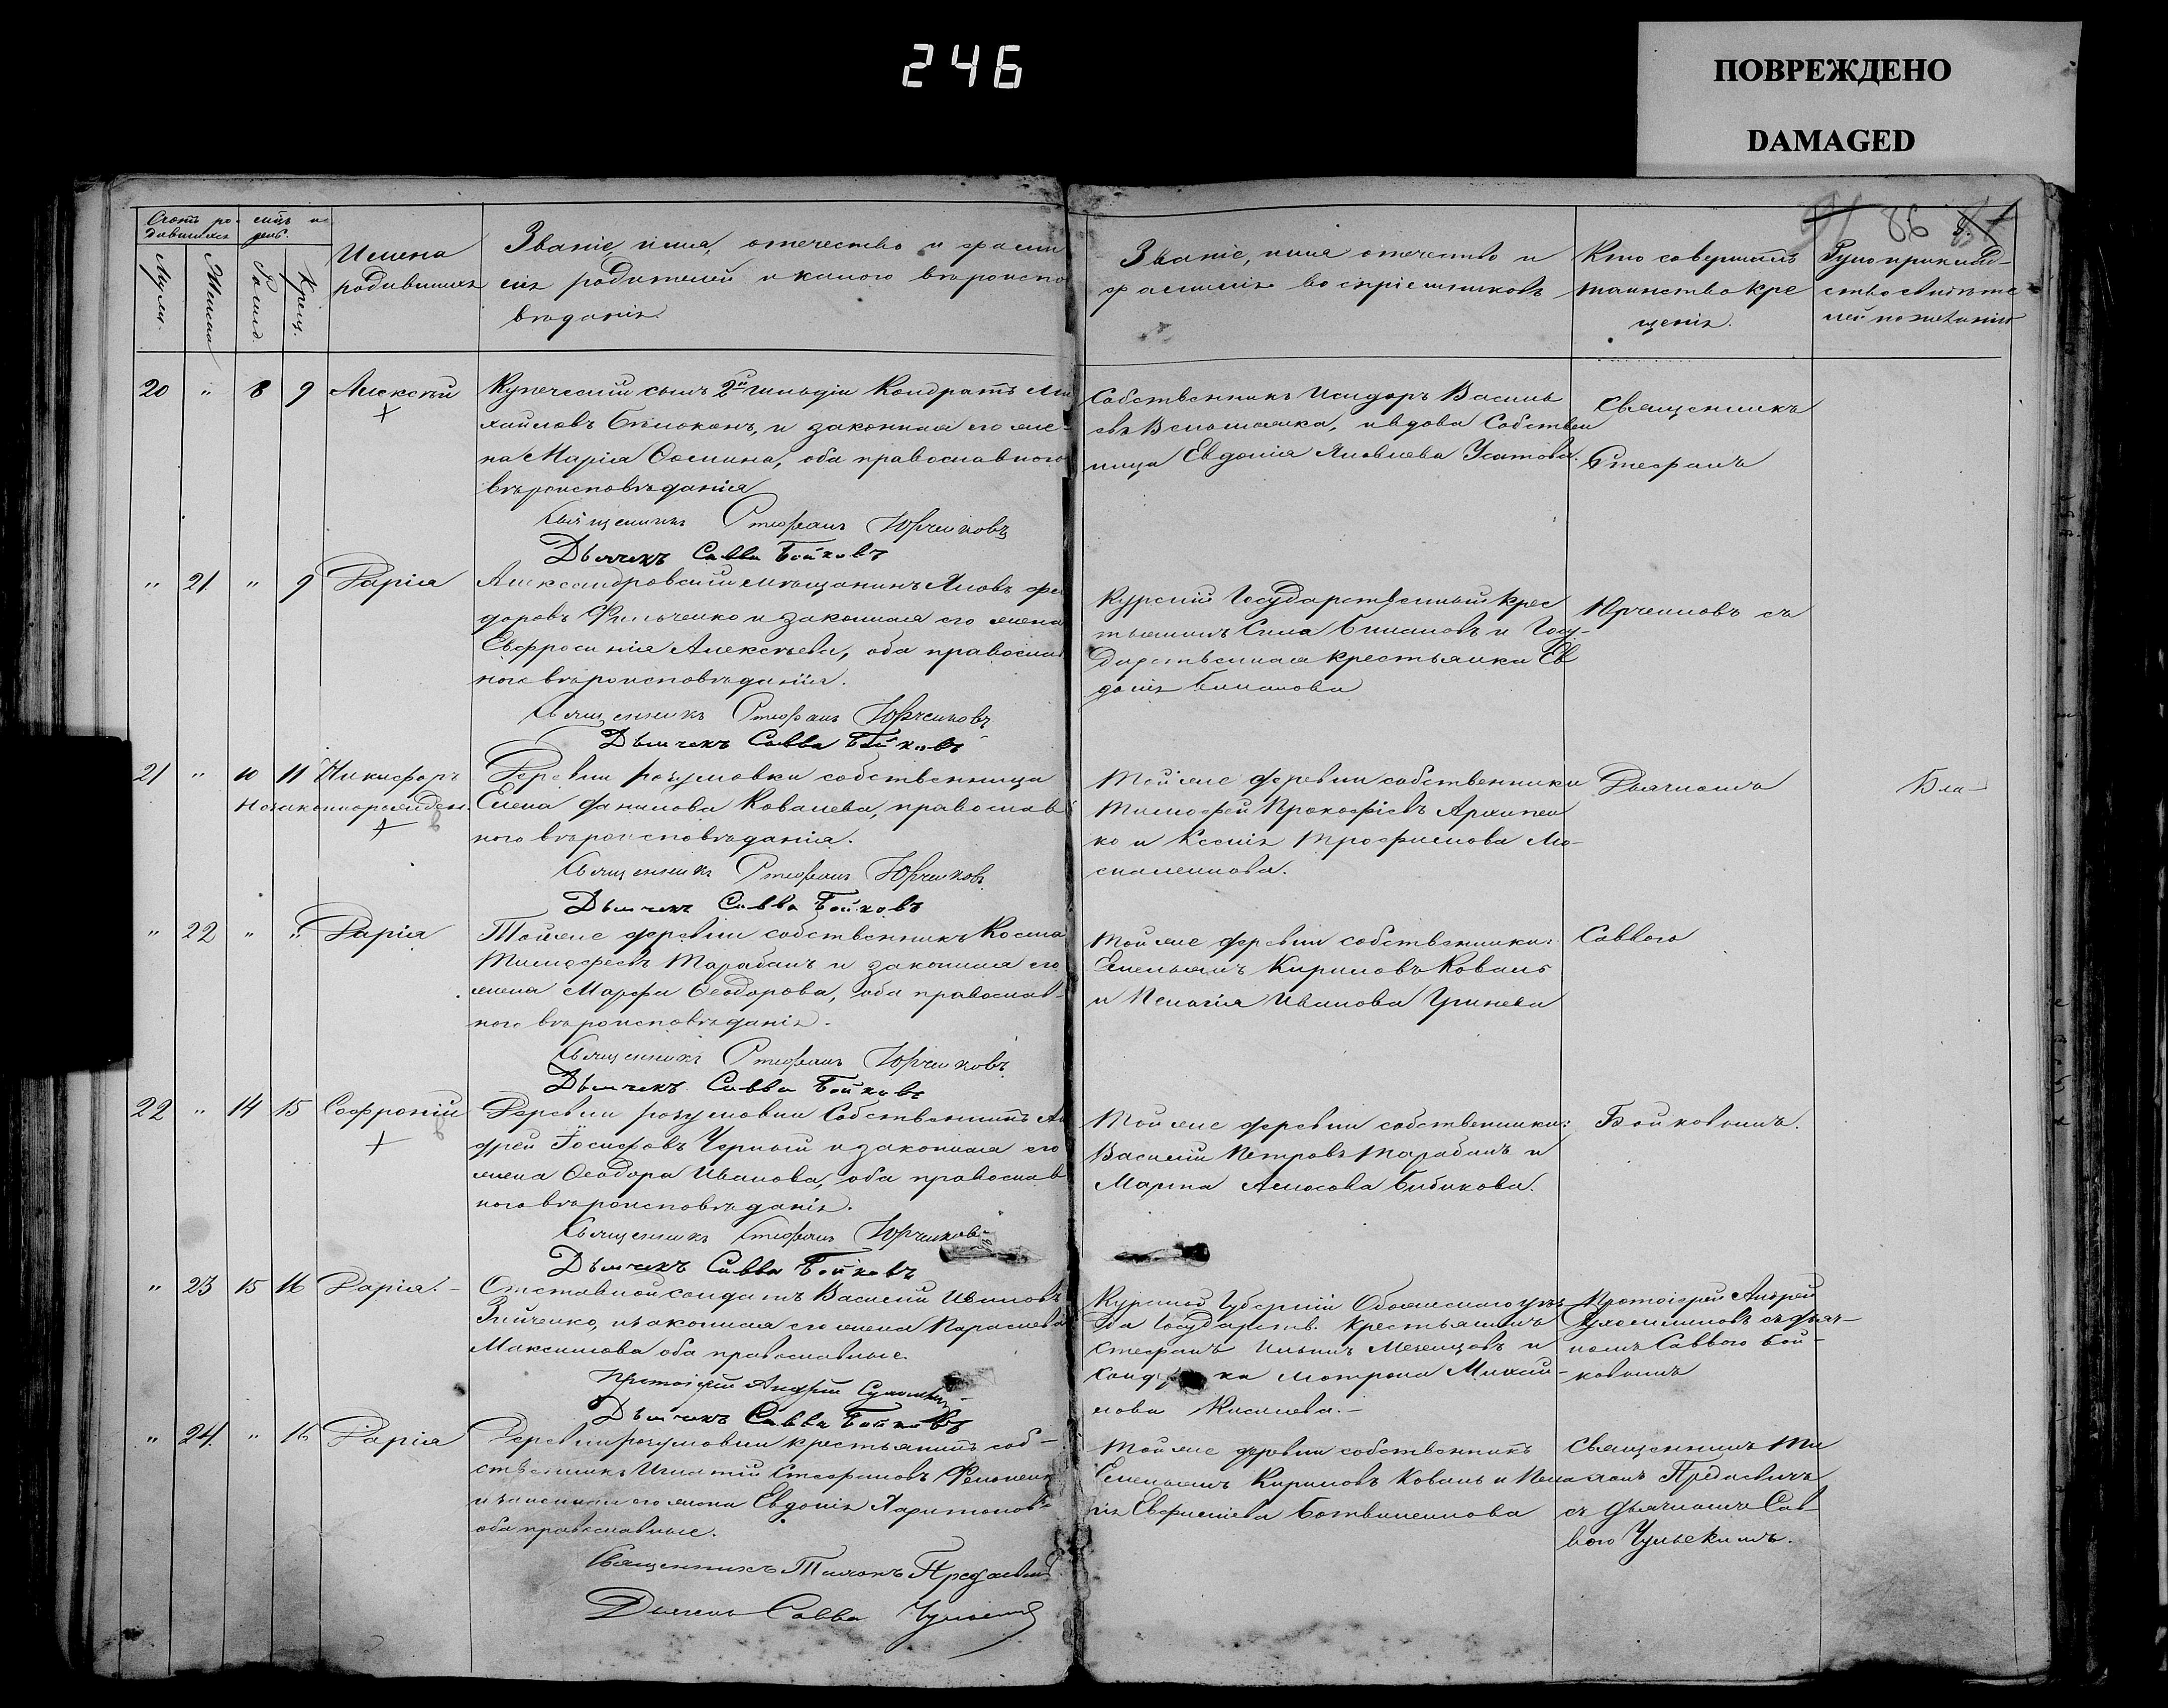 246
ПОВРЕЖДЕНО
DAMAGED
86
Счетъ ро-
дившихся
мѣц. и
день.
Муж.
Женска
Рожд.
Крещ.
Имена
родившихся
Званіе, имя, отечество и фами
лія родителей и какого вѣроиспо
вѣданія.
Званіе, имя отечество и
фамилія воспріемниковъ
Кто совершилъ
таинство кре
щенія.
Рукоприклад-
ство свидѣте
лей по желанію
20 " 8 9 Алексѣй
Купеческій сынъ 2й гильдіи Кондратъ Ми
хайловъ Бѣлоконь, и законная его же-
на Марія Фомина, оба православного
вѣроисповѣданія
Священникъ Стефанъ Юрченковъ
Дьячекъ Савва Бойковъ
Собственникъ Исидоръ Василь
евъ Вельможка, и вдова Собствен
ница Евдокія Яковлева Усатова.
Священникъ
Стефанъ
" 21. " 9 Дарія
Александровскій мѣщанинъ Яковъ Фео
доровъ Фильченко и законная его жена
Евфросинія Алексѣева, оба православ
ного вѣроисповѣданія.
Священникъ Стефанъ Юрченковъ
Дьячекъ Савва Бойковъ
Курскій Государственный крес
тьянинъ Сила Бимановъ и Госу-
дарственная крестьянка Ев
докія Биманова
Юрченковъ съ
21 " 10 11 Никифоръ
Незаконнорожден.
Деревни Розумовки собственница
Елена Данилова Ковалева, православ
ного вѣроисповѣданія.
Священникъ Стефанъ Юрченковъ
Дьячекъ Савва Бойковъ
Той же деревни собственники
Тимофей Прокофіевъ Архипен
ко и Ксенія Трофимова Мо-
скаленкова.
Дьячкомъ
Бла-
" 22 " " Дарія
Той же деревни собственникъ Косма
Тимофеевъ Тарабанъ и законная его
жена Марфа Феодорова, оба православ-
ного вѣроисповѣданія.
Священникъ Стефанъ Юрченковъ
Дьячекъ Савва Бойковъ
Той же деревни собственники:
Емельянъ Кириловъ Коваль
и Пелагія Иванова Гринева
Саввою
22 " 14 15 Софроній
Деревни Розумовки Собственникъ Ан
дрей Іосифовъ Черный и законная его
жена Феодора Иванова, оба православ
ного вѣроисповѣданія.
Священникъ Стефанъ Юрченковъ
Дьячекъ Савва Бойковъ
Той же деревни собственники:
Василій Петровъ Тарабанъ и
Марта Амосова Бибикова.
Бойковымъ.
" 23 15 16 Дарія. -
Отставной солдатъ Василій Ивановъ
Зинченко, и законная его жена Параскева
Максимова оба православные.
Протоіерей Андрей
Дьячекъ Савва Бойковъ
Курской Губерніи Обоянского уѣз
да Государств. крестьянинъ
Стефанъ Ильинъ Мезенцовъ и
Матрона Михай-
лова Киселева. -
Протоіерей Андрей
съ дьяч-
комъ Саввою Бой-
ковымъ
" 24. " 16 Дарія
Деревни Розумовки крестьянинъ соб-
ственникъ Игнатій Стефановъ
и законная его жена Евдокія Харитонов
оба православные.
Священникъ Тихонъ
Дьячекъ Савва
Той же деревни собственникъ
Емельянъ Кириловъ Коваль и Пела
гія Евфимієва Ботвиненкова
Священникъ Ти
хонъ
съ дьячкомъ Сав-
вою